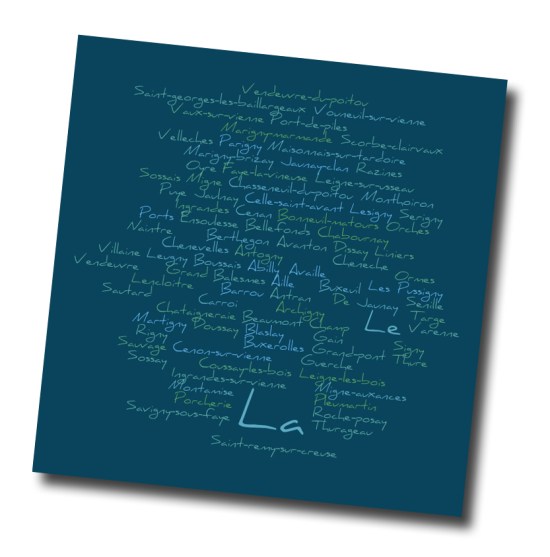 Vendeuvre-du-poitou
Saint-georges-les-baillargeaux Vouneuil-sur-vienne
Vaux-sur-vienne Port-de-piles
Marigny-marmande Scorbe-clairvaux
Velleches Parigny Maisonnais-sur-tardoire
Marigny-brizay Jaunay-clan Razines
Oyre Faye-la-vineuse Leigne-sur-usseau
Sossais Migne Chasseneuil-du-poitou Monthoiron
Puye Jaulnay Celle-saint-avant Lesigny Serigny
Ingrandes Cenan Bonneuil-matours Orches
Ports Ensoulesse Bellefonds Chabournay
Naintre Berthegon Avanton Dissay Liniers
Chenevelles Antogny Cheneche
Villaine Leugny Boussais Abilly Availle Ormes
Vendeuvre Grand Balesmes Aille Buxeuil Les Pussigny
Lencloitre Barrou Antran De Jaunay Senille
Sautard Carroi Archigny Targe
Chataigneraie Beaumont Champ Le Varenne
Martigny Doussay Blaslay Gain
Rigny Buxerolles Grand-pont Signy
Sauvage Cenon-sur-vienne Guerche Thure
Sossay Coussay-les-bois Leigne-les-bois
Ingrandes-sur-vienne Migne-auxances
Montamise Pleumartin
Porcherie La Roche-posay
Savigny-sous-faye Thurageau
Saint-remy-sur-creuse